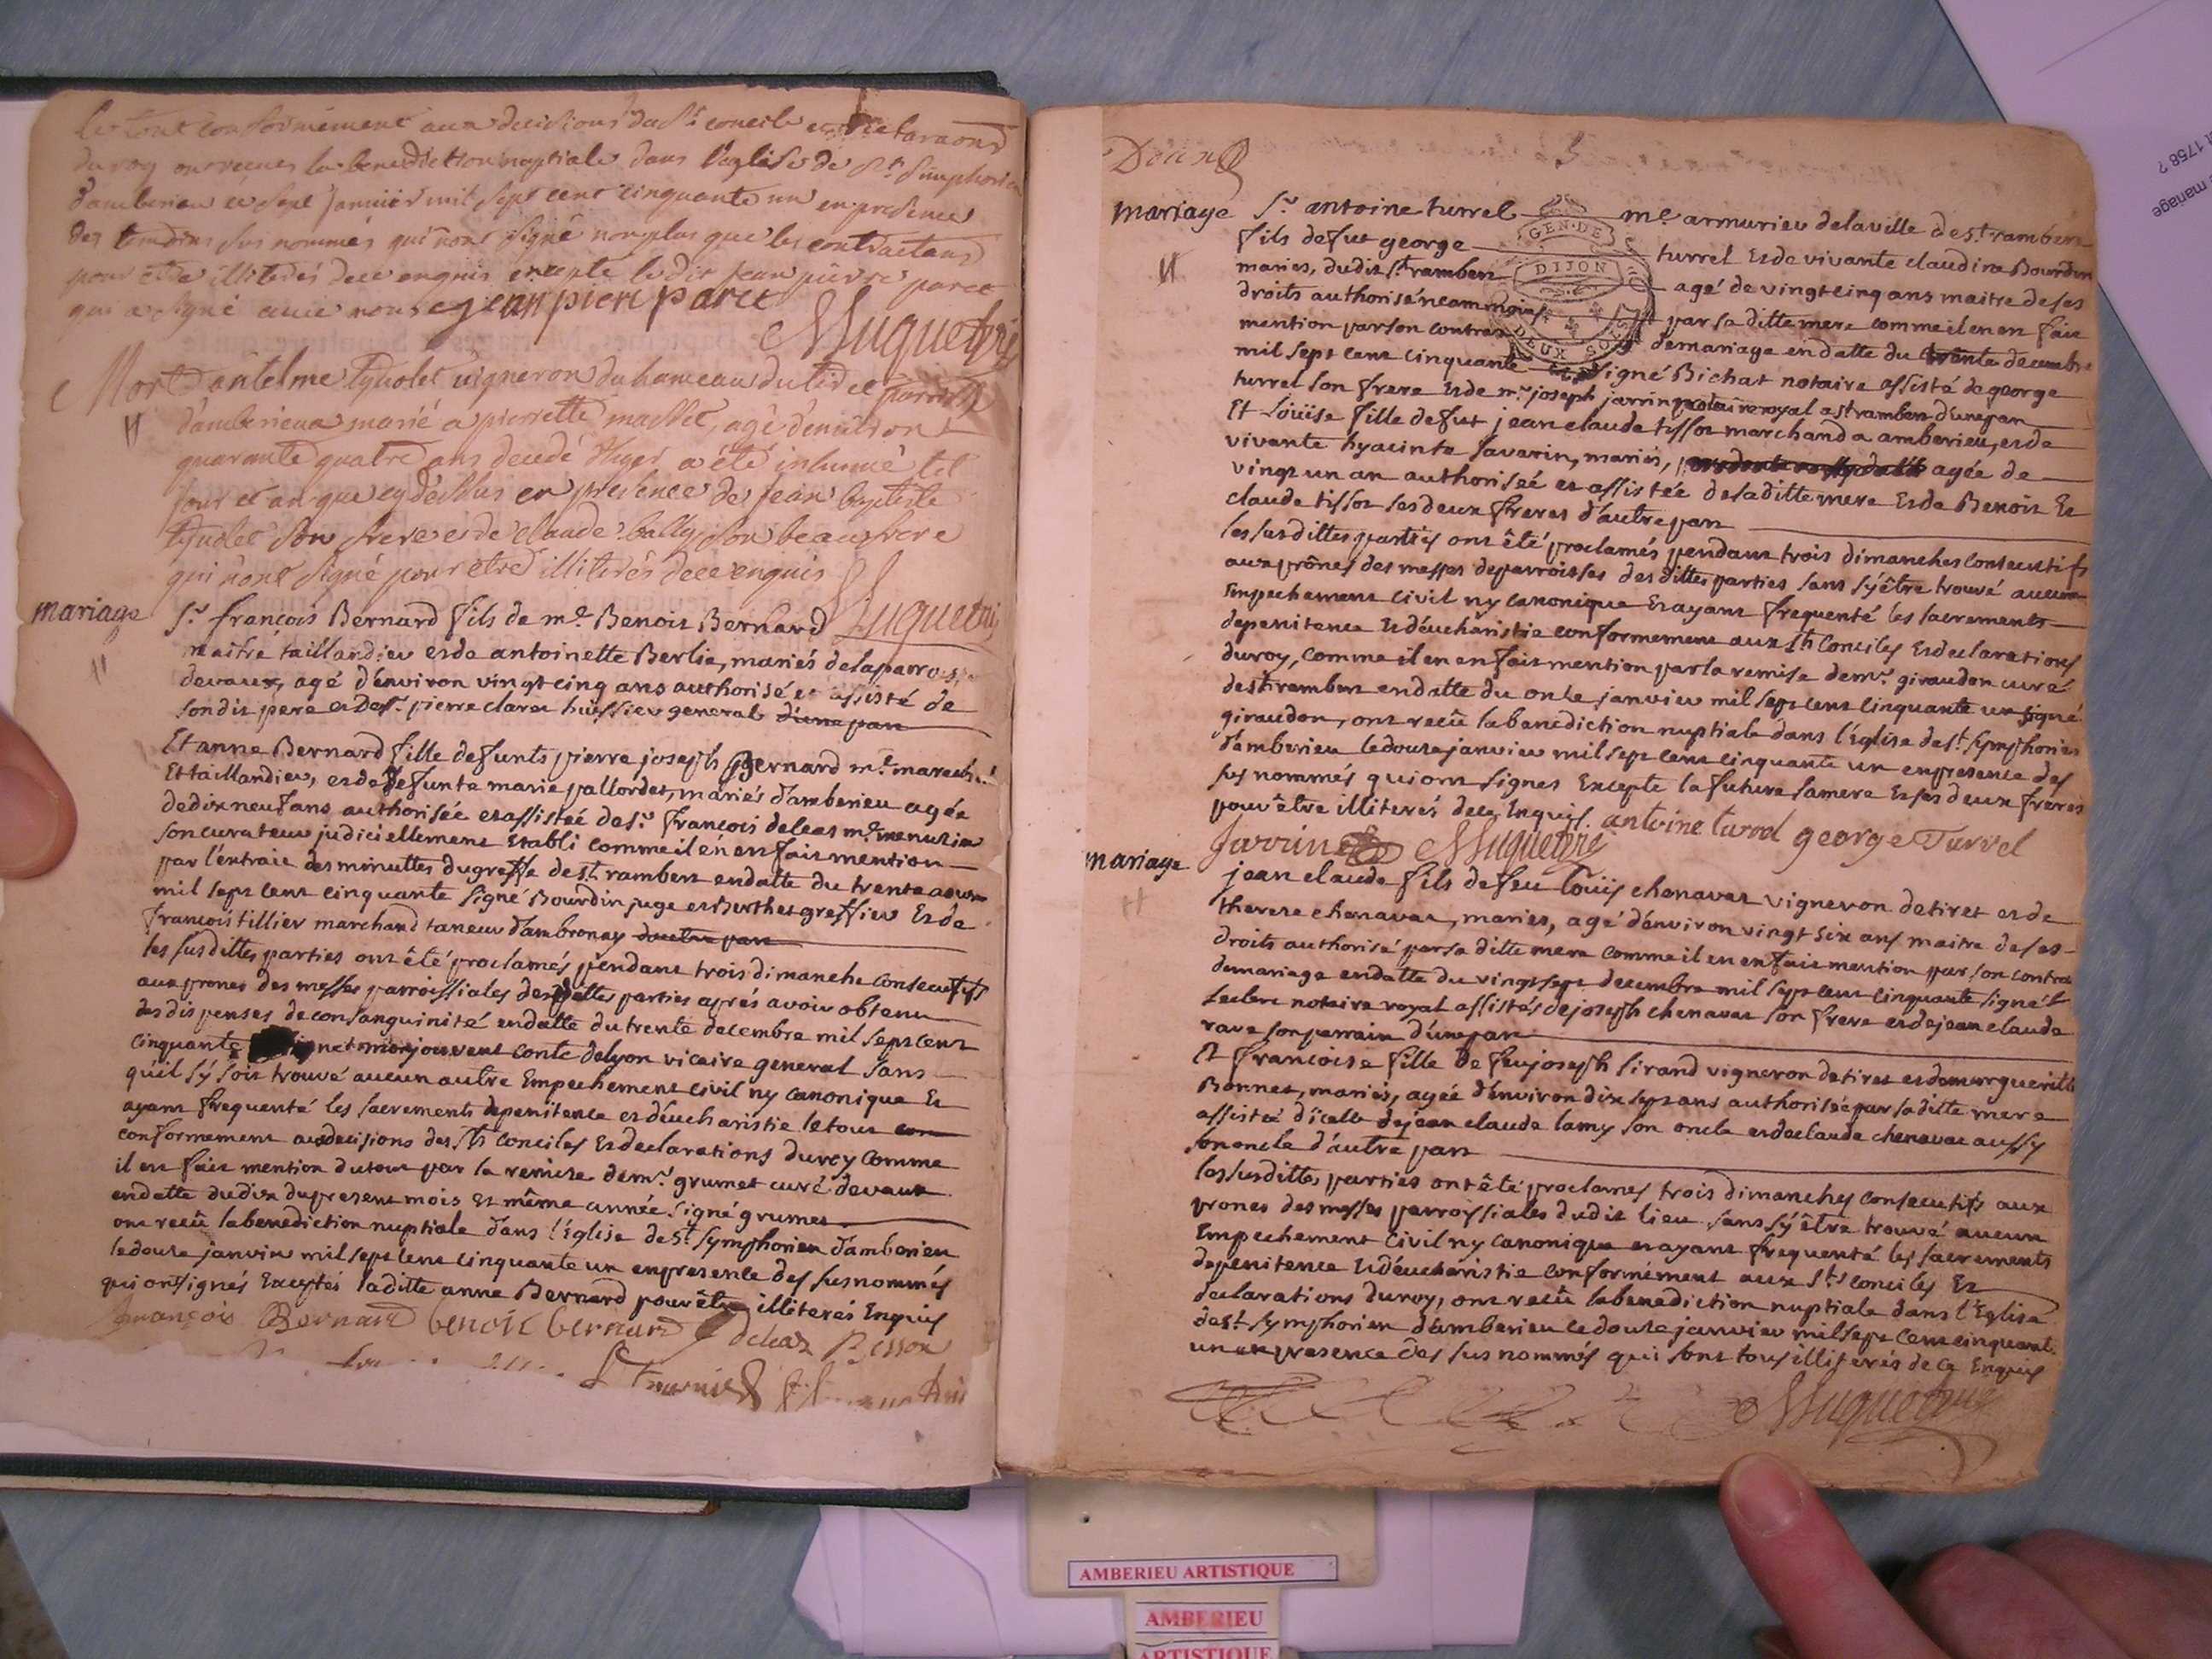 le tout conformement aux decisions du St concile et declaraons
du roy ont reçues la benediction nuptiale dans l'église de St Simphorien
d'amberieu ce sept janvier mil sept cent cinquante un en presence
des temoins sus nommés qui n'ont signé non plus que les contractans
pour être illiterés de ce enquis excepte le dit jean pierre paret
qui a signé avec nous jean pierr paret
Huguet
Mort antelme tynolet vigneron du hameau du tiret parroisse
d'amberieux marié a pierrette mallet, agé d'environ
quarante quatre ans decedé d'hyer a été inhumé tel
jour et an que cy dessus en presence de jean baptiste
son frere et de claude bally son beaufrere
qui n'ont signé pour être illiterés de ce enquis
mariage Sr françois Bernard fils de me Benoit Bernard
maitre taillandier et de antoinette Berlie, mariés de la parroisse
devaux, agé d'environ vingt cinq ans authorisé et assisté de
son dit pere et de Sr pierre claret huissier general d'une part
Et anne Bernard fille defunts pierre joseph Bernard me marechal
Et taillandier, et de defunte marie pallordet, mariés d'amberieu agée
de dix neuf ans authorisée et assistée de Sr françois deleaz me menusier
son curateur judiciellement Etabli comme il en est fait mention
par l'extrait des minuttes du greffe de St rambert en datte du trente aoust
mil sept cent cinquante signé Bourdin juge et Berthet greffier Et de
françois tillier marchand taneur d'ambronay d'autre part
les susdittes parties ont été proclamés pendant trois dimanche consecutifs
aux prones des messes parroissiales des dittes parties aprés avoir obtenu
des dispenses de consanguinité en datte du trente decembre mil sept cent
cinquante signé monjouvent conte de lyon vicaire general sans
qu'il s'y soit trouvé aucun autre Empechement civil ny canonique Et
ayant frequenté les sacrements de penitence et d'eucharistie le tout
conformement aux decisions des Sts conciles Et declarations du roy comme
il est fait mention du tout par la remise de mr grumet curé de vaux
en datte du dix du present mois Et même année signé grumet
ont reçû la benediction nuptiale dans l'Eglise de St Symphorien d'amberieu
le douze janvier mil sept cent cinquante un en presence des sus nommés
qui ont signés Exceptés la ditte anne Bernard pour être illiterés Enquis
françois Bernard benoit bernard deleaz Besson
Douze
mariage Sr antoine turrel me armurier de la ville de St rambert
GEN.DE
fils de fut george turrel et de vivante claudine Bourdin
DIJON
mariés, dudit St rambert agé de vingt cinq ans maitre de ses
droits authorisé neammoins par sa ditte mere comme il en est fait
DEUX SOLS
mention par son contrat de mariage en datte du trente decembre
mil sept cent cinquante signé Bichat notaire assisté de george
turrel son frere Et de mr joseph jarrin notaire royal a St rambert d'une part
Et Loüise fille de fut jean claude tissot marchand a amberieu, et de
vivante hyacinte savarin, mariés, agée de
vingt un an authorisée et assistée de sa ditte mere Et de Benoit Et
claude tissot ses deux freres d'autre part
les susdittes parties ont été proclamés pendant trois dimanches consecutifs
aux prônes des messes de parroisses des dittes parties sans s'y être trouvé aucun
Empechement civil ny canonique Et ayant frequenté les sacrements
de penitence Et d'eucharistie conformement aux Sts Conciles Et declarations
du roy, comme il en est fait mention par la remise de mr giraudon curé
de St rambert en datte du onze janvier mil sept cent cinquante un signé
giraudon, ont reçû la benediction nuptiale dans l'église de St Symphorien
d'amberieu le douze janvier mil sept cent cinquante un en presence des
sus nommés qui ont signés Excepte la future sa mere Et ses deux freres
pour être illiterés de ce Enquis. antoine turrel george Turrel
Jarrin Huguet
mariage jean claude fils de feu Loüis chenavaz vigneron de tiret et de
therese chenavaz, mariés, agé d'environ vingt six ans maitre de ses
droits authorisé par sa ditte mere comme il en est fait mention par son contrat
de mariage en datte du vingt sept decembre mil sept cent cinquante signé
Leclerc notaire royal assistés de joseph chenavaz son frere et de jean claude
rave son parrain d'une part
Et françoise fille de feu joseph Sirand vigneron de tiret et de marguerite
Bonnet, mariés, agée d'environ dix sept ans authorisée par sa ditte mere
assistée d'icelle de jean claude lamy son oncle et de claude chenavaz aussy
son oncle d'autre part
les susdittes parties ont été proclamés trois dimanches consecutifs aux
prones des messes parroissiales dudit lieu sans s'y être trouvé aucun
Empechement civil ny canonique et ayant frequenté les sacrements
de penitence Et d'eucharistie conformément aux Sts conciles Et
declarations du roy, ont reçû la benediction nuptiale dans l'Eglise
de St Symphorien d'amberieu le douze janvier mil sept cent cinquante
un en presence des sus nommés qui sont tous illiterés de ce Enquis
Huguet
AMBERIEU ARTISTIQUE
AMBERIEU
ARTISTIQUE
t 1758 ?
mariage